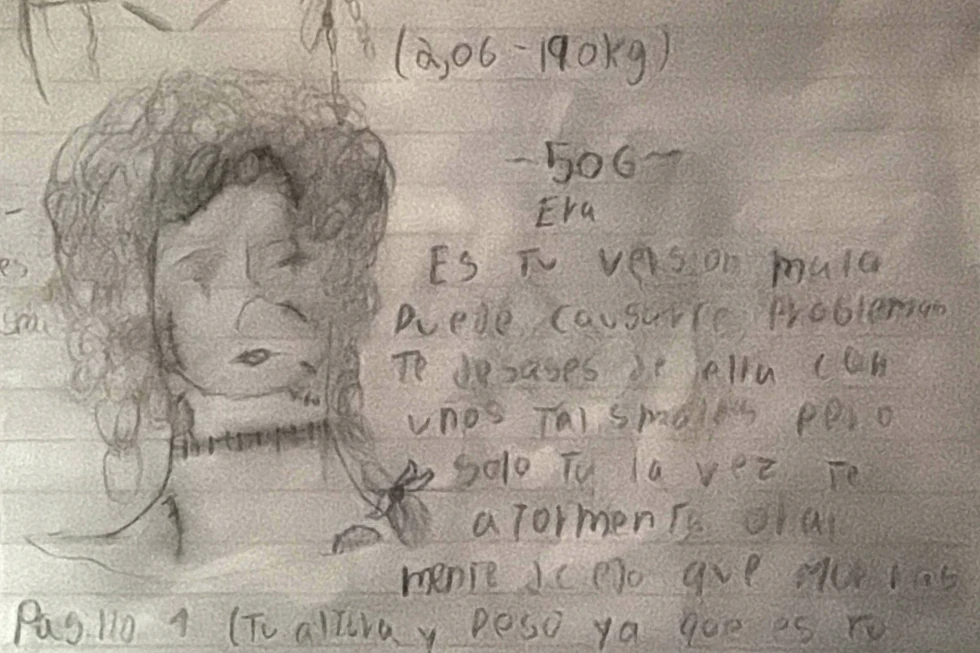 (2,06-190kg)
-506-
Eva
Es Tu version mala
Puede causarte Problemas
Te desases de ella con
unos Talismales pero
solo Tu la vez Te
atormenta
mente deceo que mueras
es
Pasillo 1 (Tu altura y peso ya que es tu